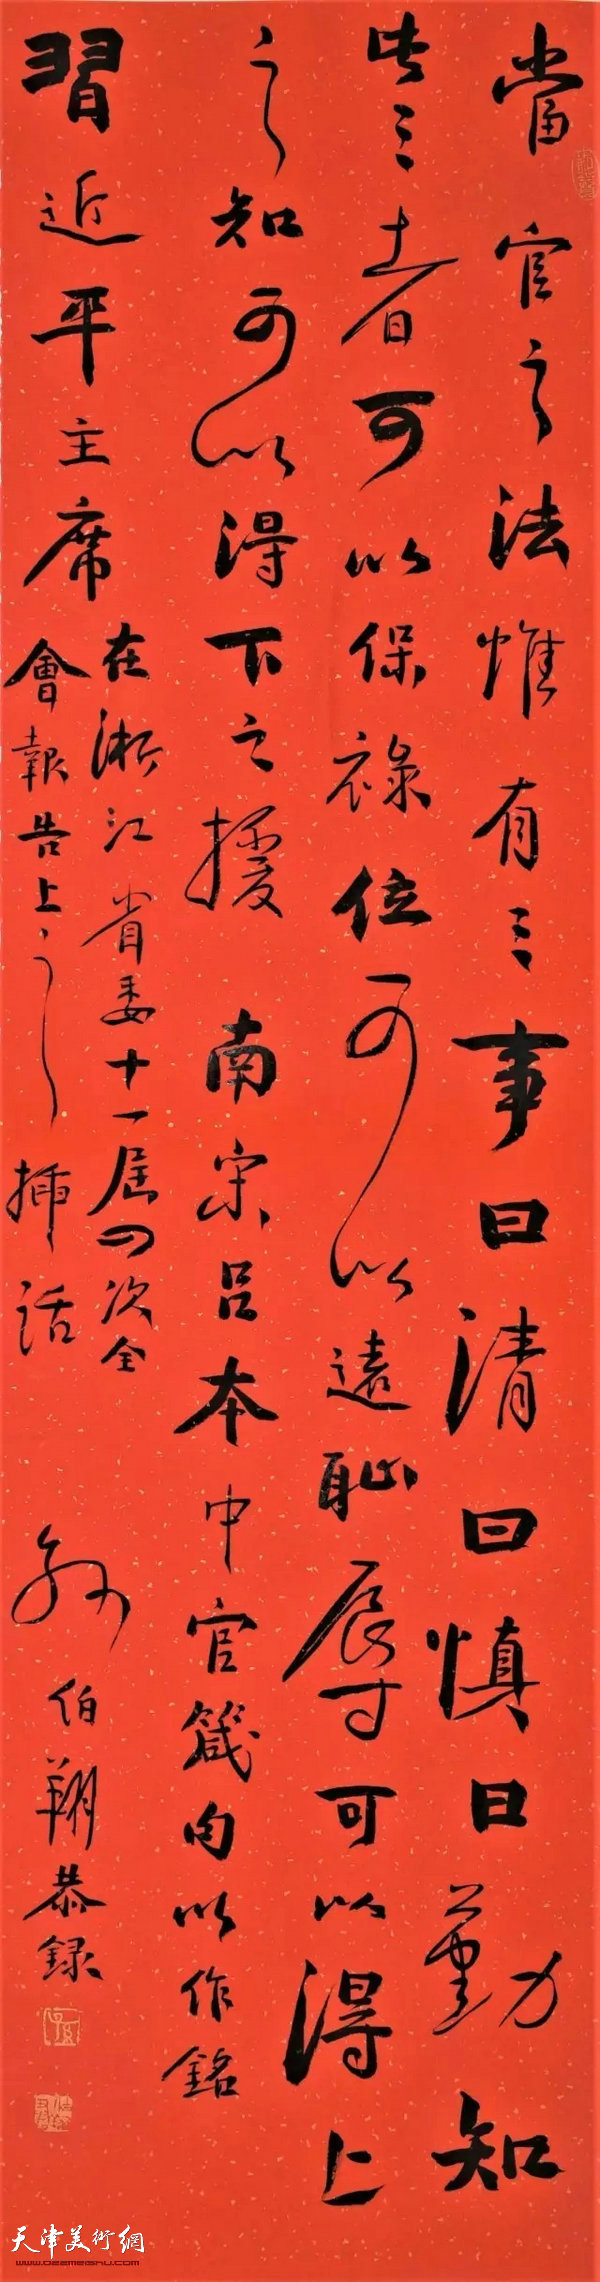 當官之法惟有三事曰清曰慎曰勤知
此三者可以保祿位可以遠耻辱可以得上
之知可以得下之援 南宋呂本中官箴句以作銘
習近平主席
在浙江省委十一届四次全
會報告上之插話
孫伯翔恭録
天津美術網
www.022meishu.com